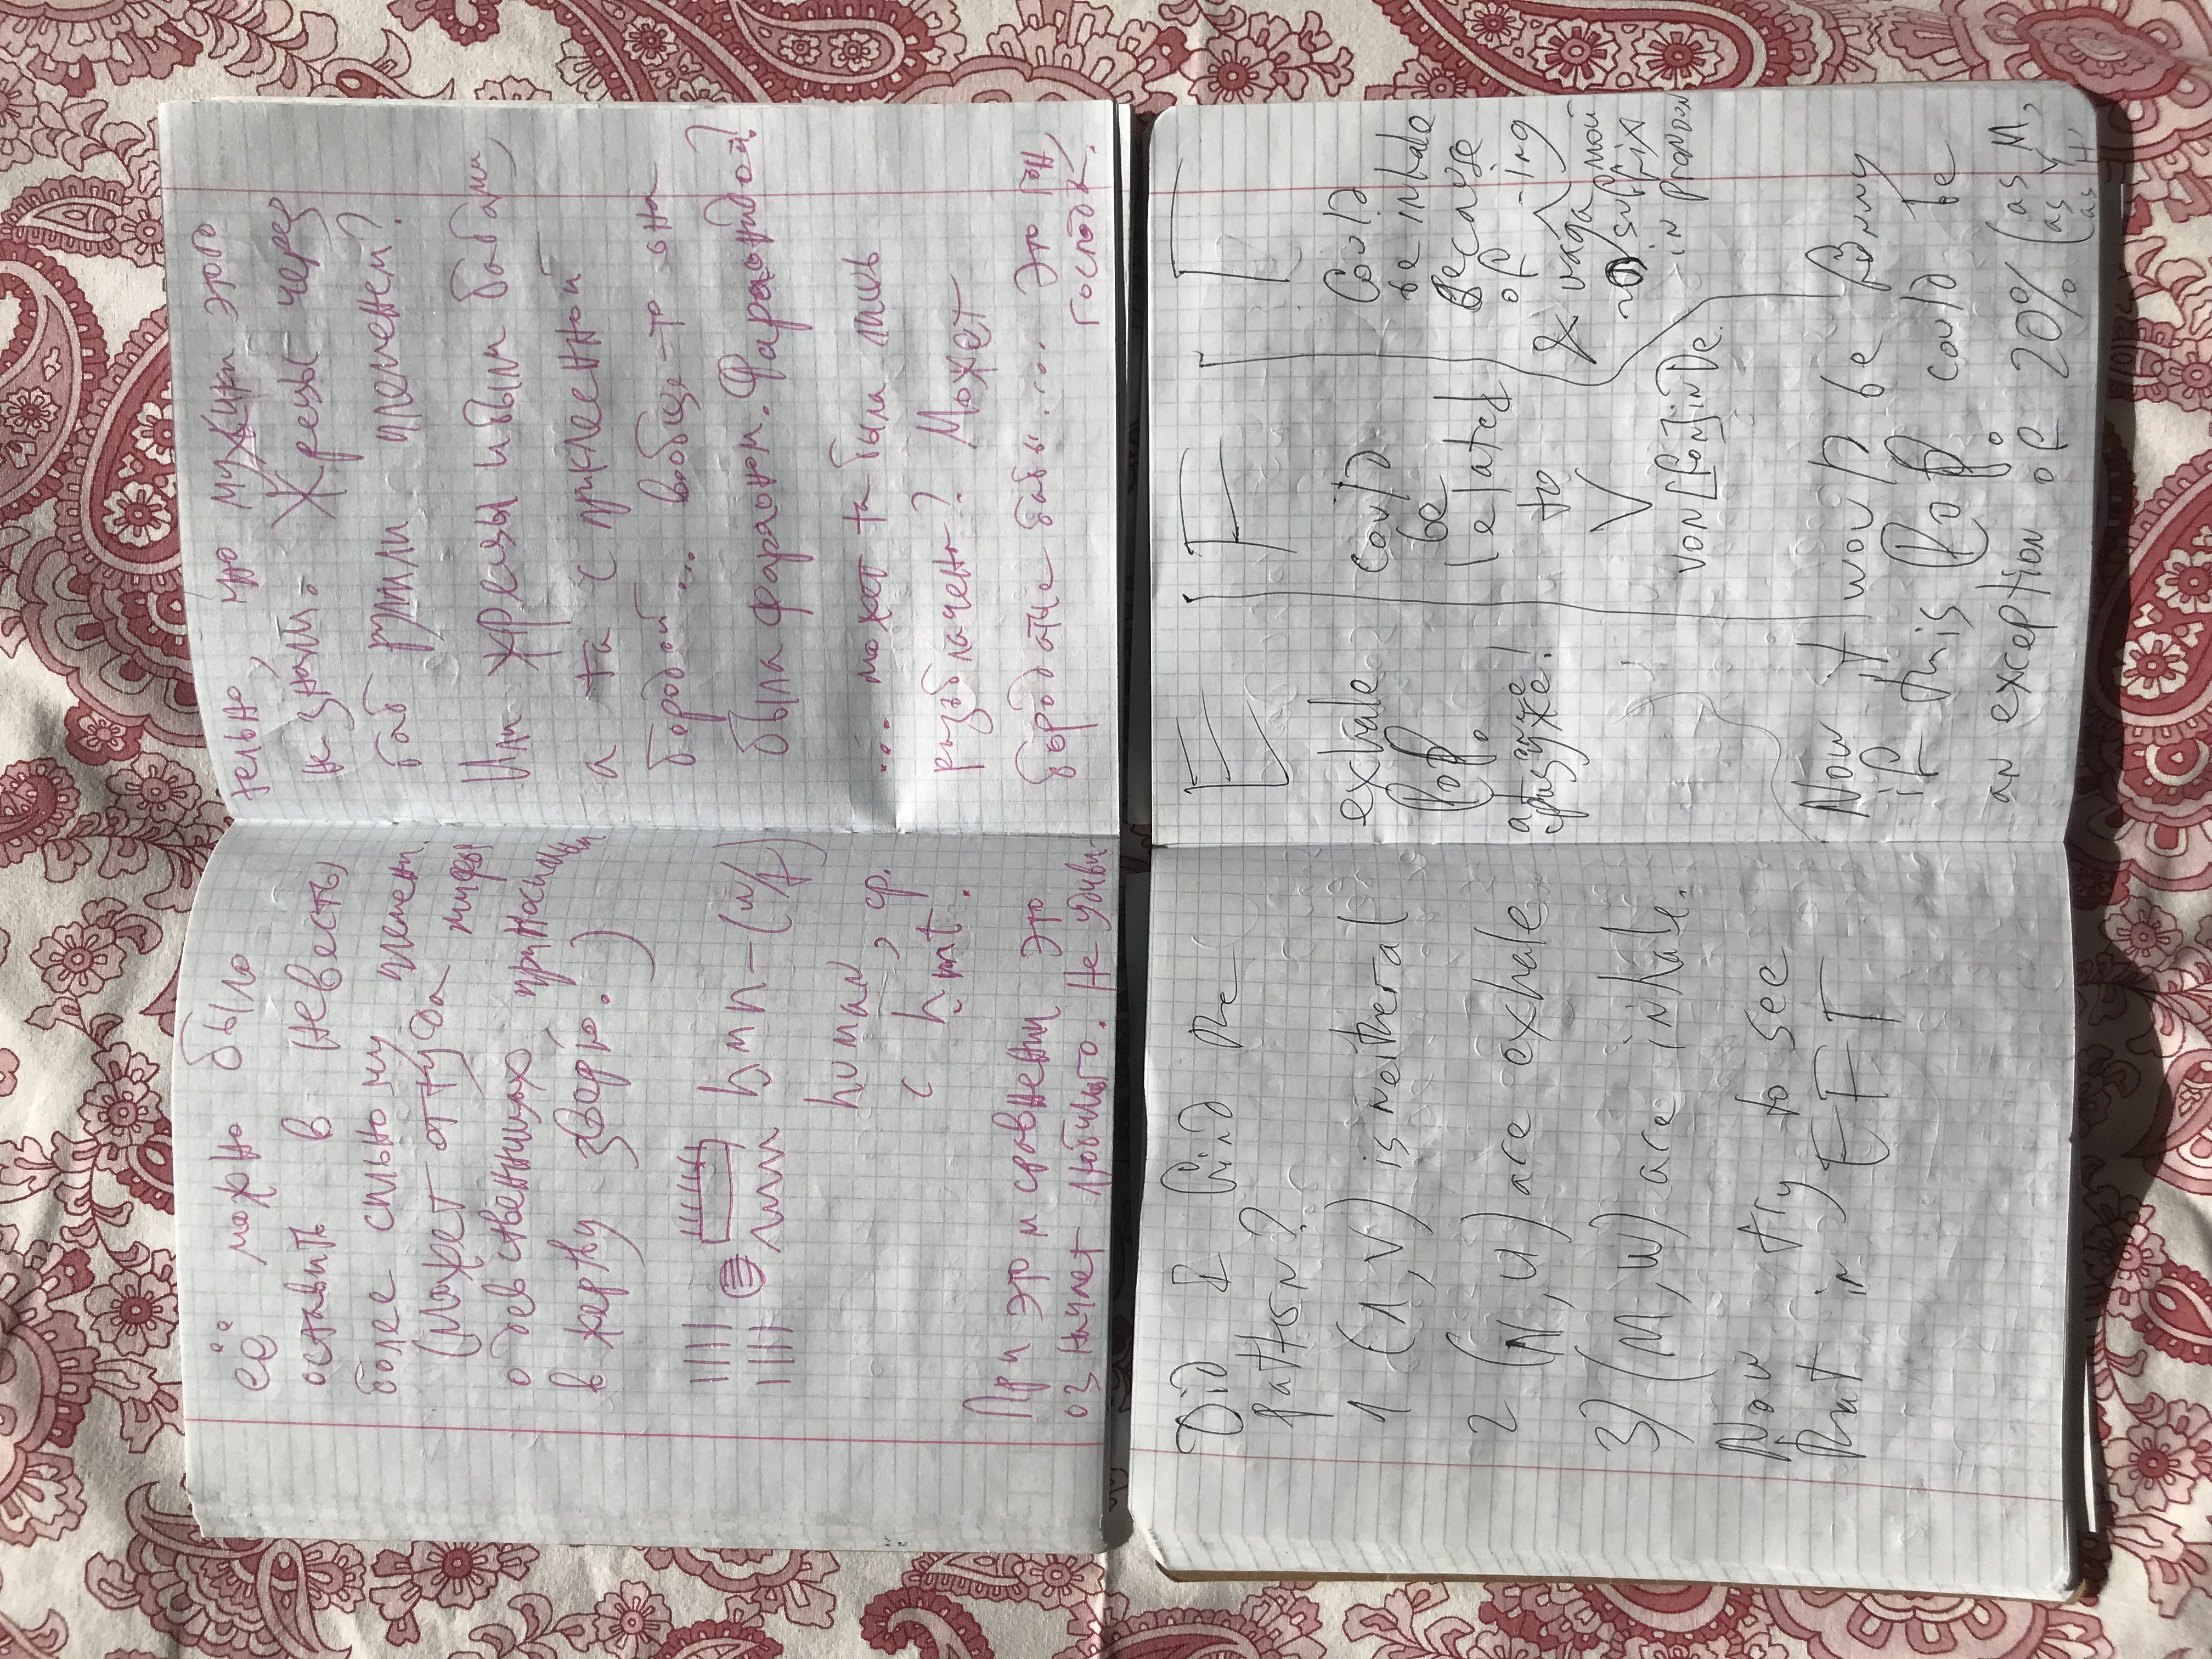 её можно было
оставить в невесты
более сильному племени.
(Может оттуда мифы
о девственницах, приносимых
в жертву зверю.)
ḥmn-(w/t)
human, ср.
с ḥmt.
При этом сравнении это
означает любимого. Не удиви-
тельно, что мужики этого
не знали. Жрецы через
баб рулили племенем?
Или жрецы и были бабами,
а та с приклеенной
бородой... вообще-то она
была фараоном. Фараонидой?
... может та была лишь
разоблачена? Может
бородатые бабы.... Это гон,
господа.
Did I find the
pattern?
1 (Λ, V) is neitheral
2 (N, И) are exhale
3) (M, W) are inhale.
Now try to see
that in EFΓ
E F Γ
exhale
Pop.
at once!
сразу же!
could
be
related
to
V
von [fon] in De.
Could
be inhale
because
of -ing
& вада
мой
suffix
in pronoun
Now it would be funny
if this Pop. could be
an exception of 20% (as M,
as Y,
as H,